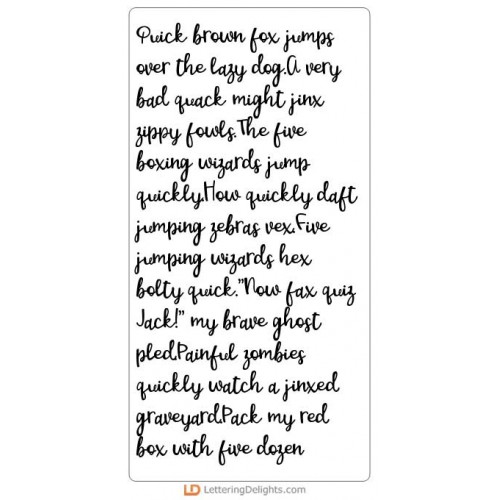 Quick brown fox jumps
over the lazy dog.A very
bad quack might jinx
zippy fowls.The five
boxing wizards jump
quickly.How quickly daft
jumping zebras vex.Five
jumping wizards hex
bolty quick."Now fax quiz
Jack!" my brave ghost
pled.Painful zombies
quickly watch a jinxed
graveyard.Pack my red
box with five dozen
LD LetteringDelights.com